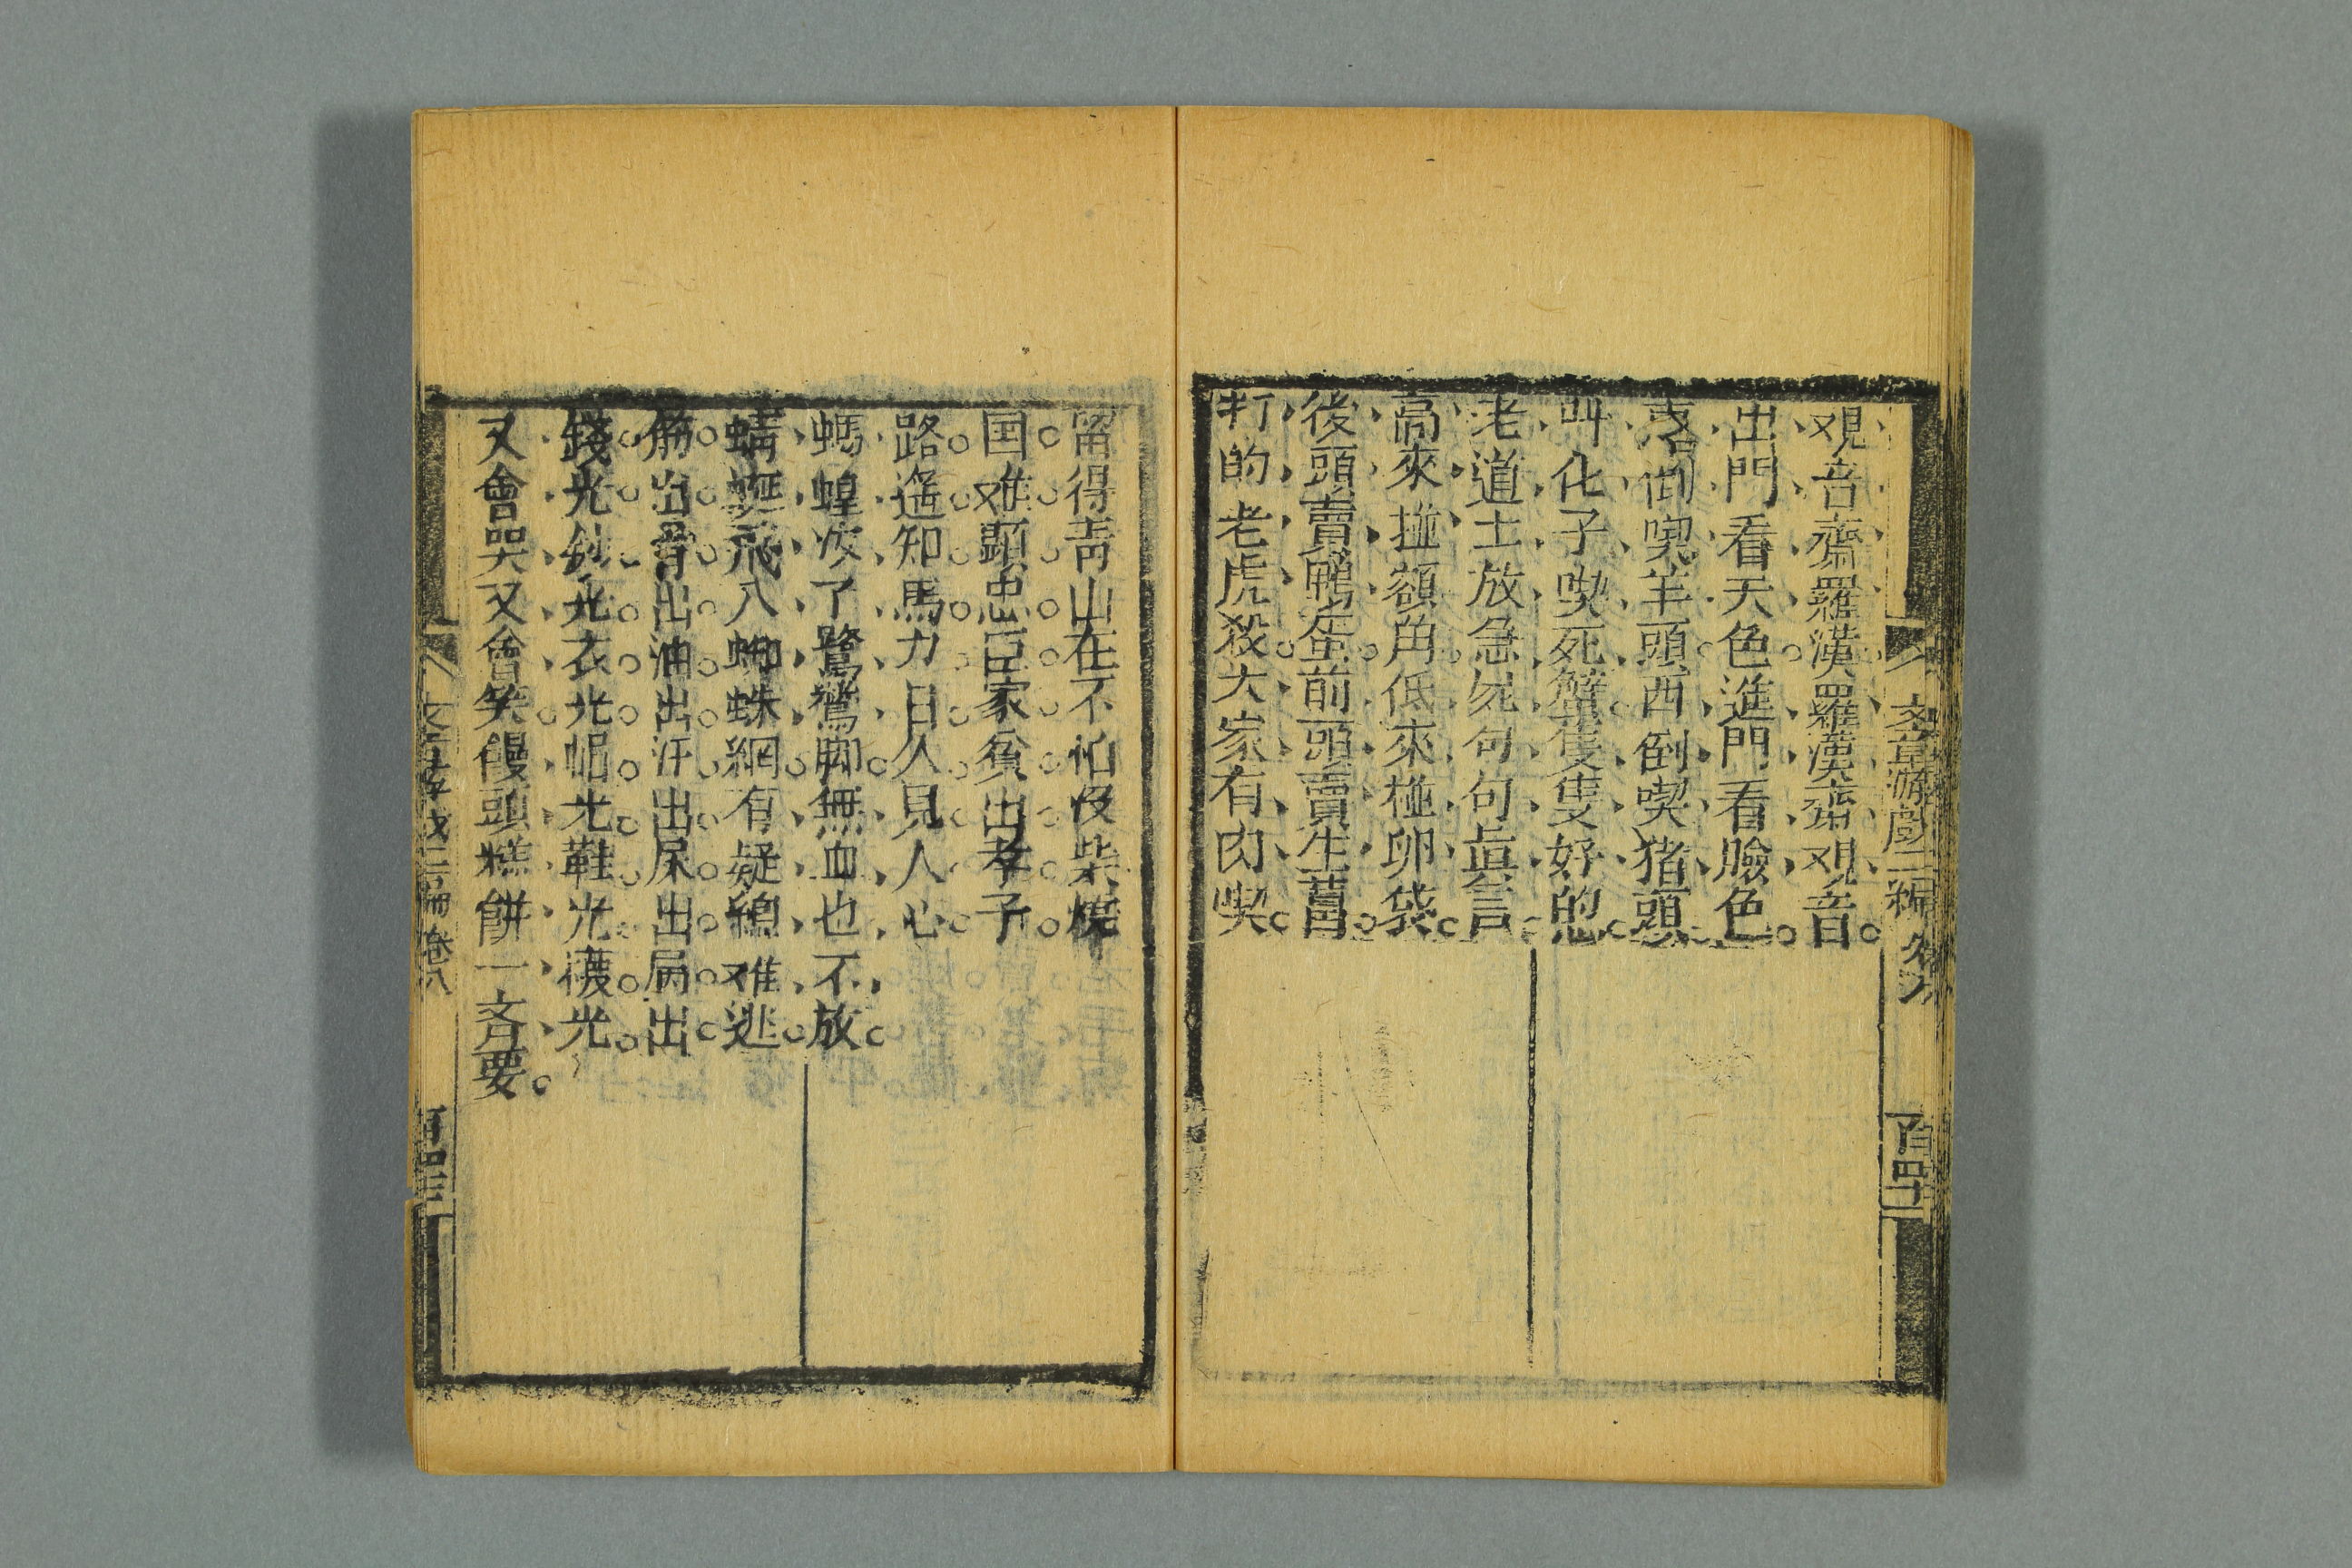 文章游戲二編 卷八 百四十二
观音齋羅漢羅漢齋观音
出門看天色進門看臉色
東倒喫羊頭西倒喫猪頭
叫化子喫死蟹隻隻好的
老道士放急屁句句真言
高來揰額角低來椪卵袋
後頭賣鴨蛋前頭賣生薑
打的老虎殺大家有肉喫
留得青山在不怕没柴燒
国难顕忠臣家貧出孝子
路遥知馬力日久見人心
螞蝗叮了鷺鷥脚無血也不放
蜻蜓飛入蜘蛛網有疑縂难逃
筋出骨出油出汗出尿出屙出
錢光鈔光衣光帽光鞋光襪光
又會哭又會笑饅頭糕餅一齐要
文章游戲二編 卷八